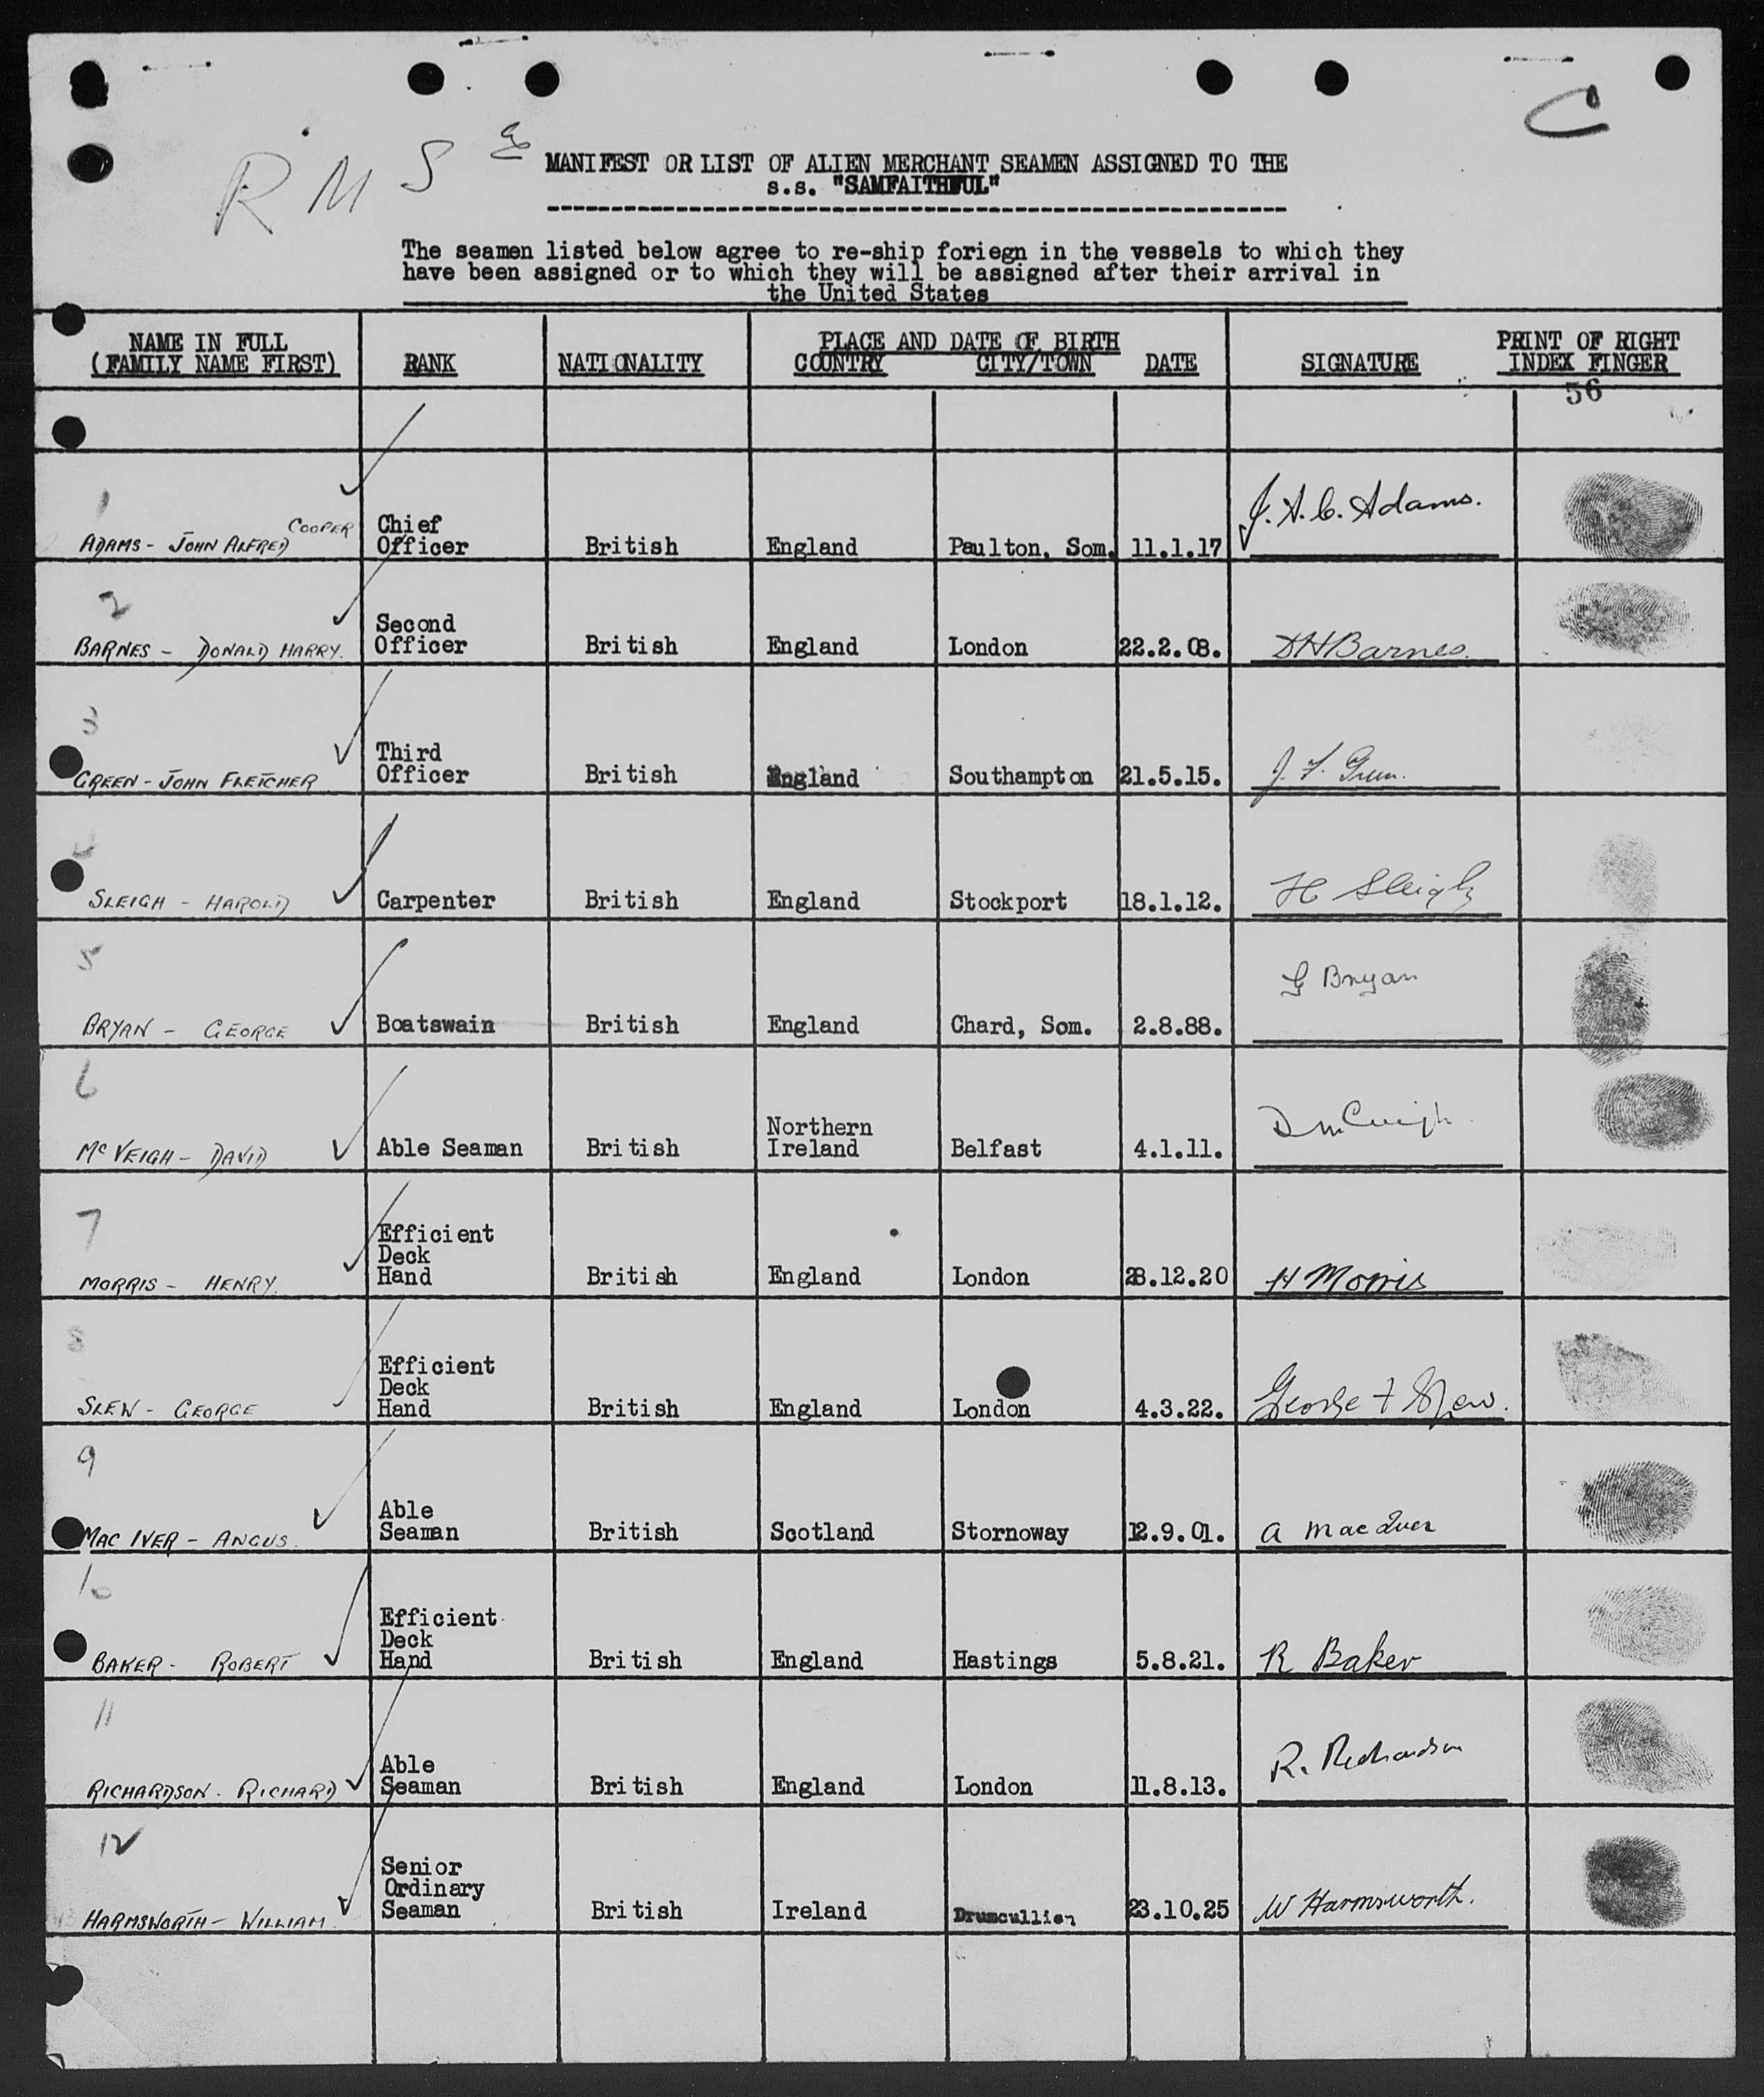 C
R M S
MANIFEST OR LIST OF ALIEN MERCHANT SEAMEN ASSIGNED TO THE
s.s. "SAMFAITHFUL"
The seamen listed below agree to re-ship foriegn in the vessels to which they
have been assigned or to which they will be assigned after their arrival in
the United States
NAME IN FULL
(FAMILY NAME FIRST)
RANK
NATIONALITY
PLACE AND DATE OF BIRTH
COUNTRY CITY/TOWN DATE
SIGNATURE
PRINT OF RIGHT
INDEX FINGER
56
1
ADAMS - JOHN ALFRED COOPER
Chief
Officer
British England Paulton, Som. 11.1.17 J. A. C. Adams.
2
BARNES - DONALD HARRY.
Second
Officer
British England London 22.2.08. DHBarnes.
3
GREEN - JOHN FLETCHER
Third
Officer
British England Southampton 21.5.15. J. F. Green.
4
SLEIGH - HAROLD Carpenter British England Stockport 18.1.12. H Sleigh
5
BRYAN - GEORGE Boatswain British England Chard, Som. 2.8.88. G Bryan
6
McVEIGH - DAVID Able Seaman British
Northern
Ireland
Belfast 4.1.11. D McVeigh
7
MORRIS - HENRY.
Efficient
Deck
Hand
British England London 28.12.20 H Morris
8
SLEW - GEORGE
Efficient
Deck
Hand
British England London 4.3.22. George F Slew.
9
MAC IVER - ANGUS.
Able
Seaman
British Scotland Stornoway 12.9.01. a mac Iver
10
BAKER - ROBERT
Efficient
Deck
Hand
British England Hastings 5.8.21. R Baker
11
RICHARDSON. RICHARD
Able
Seaman
British England London 11.8.13. R. Richardson
12
HARMSWORTH - WILLIAM
Senior
Ordinary
Seaman
British Ireland Drumcullien 23.10.25 W Harmsworth.